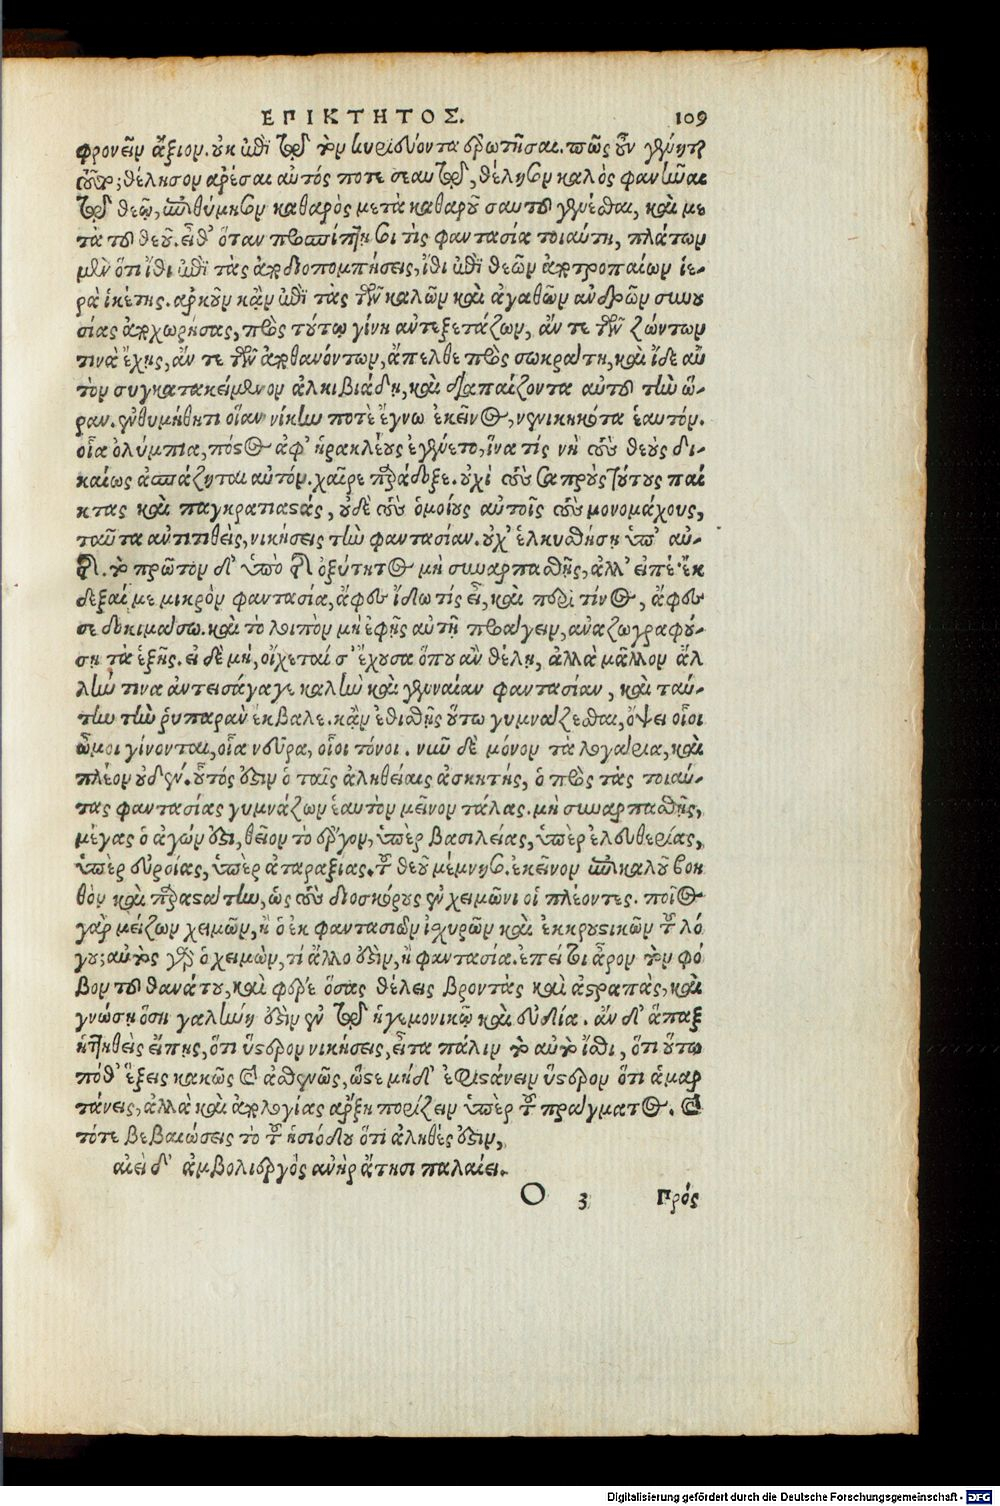 ΕΠΙΚΤΗΤΟΣ. 109
φρονεῖν ἄξιον. οὐκ ἐπὶ τῷ τὸν κυριεύοντα ἐρωτῆσαι. πῶς οὖν γένηται
τοῦτο; θέλησον ἀρέσαι αὐτός ποτε σεαυτῷ, θέλησον καλὸς φανῆναι
τῷ θεῷ, ἐπιθύμησον καθαρὸς μετὰ καθαροῦ σαυτοῦ γενέσθαι, καὶ με-
τὰ τοῦ θεοῦ. εἶθ' ὅταν προσπίπτῃ σοι τὶς φαντασία τοιαύτη, πλάτων
μὲν ὅτι ἴθι ἐπὶ τὰς ἀποδιοπομπήσεις, ἴθι ἐπὶ θεῶν ἀποτροπαίων ἱε-
ρὰ ἱκέτης. ἀρκοῦν κἂν ἐπὶ τὰς τῶν καλῶν καὶ ἀγαθῶν ἀνδρῶν συνου
σίας ἀποχωρήσας, πρὸς τούτῳ γίνῃ ἀντεξετάζων, ἄν τε τῶν ζώντων
τινὰ ἔχῃς, ἄν τε τῶν ἀποθανόντων, ἄπελθε πρὸς σωκράτη, καὶ ἴδε αὐ
τὸν συγκατακείμενον ἀλκιβιάδῃ, καὶ διαπαίζοντα αὐτοῦ τὴν ὥ-
ραν. ἐνθυμήθητι οἵαν νίκην ποτὲ ἔγνω ἐκεῖνος, νενικηκότα ἑαυτόν.
οἷα ὀλύμπια, πόστος ἀφ' ἡρακλέους ἐγένετο, ἵνα τίς νὴ τοὺς θεοὺς δι-
καίως ἀσπάζηται αὐτόν. χαῖρε παράδοξε. οὐχὶ τοὺς σαπροὺς τούτους παί
κτας καὶ παγκρατιαστάς, οὐδὲ τοὺς ὁμοίους αὐτοῖς τοὺς μονομάχους,
ταῦτα ἀντιτιθεὶς, νικήσεις τὴν φαντασίαν. οὐχ' ἑλκυσθήσῃ ὑπ' αὐ-
τῆς. τὸ πρῶτον δ' ὑπὸ τῆς ὀξύτητος μὴ συναρπασθῇς, ἀλλ' εἰπὲ ἔκ
δεξαί με μικρὸν φαντασία, ἄφες ἴδω τίς εἶ, καὶ περὶ τίνος, ἄφες
σε δοκιμάσω. καὶ τὸ λοιπὸν μὴ ἐφῇς αὐτῇ προάγειν, ἀναζωγραφού-
σῃ τὰ ἑξῆς. εἰ δὲ μὴ, οἴχεταί σ' ἔχουσα ὅπου ἂν θέλῃ, ἀλλὰ μᾶλλον ἄλ
λην τινα ἀντεισάγαγε καλὴν καὶ γενναίαν φαντασίαν, καὶ ταύ-
την τὴν ῥυπαρὰν ἔκβαλε. κἂν ἐθισθῇς οὕτω γυμνάζεσθαι, ὄψει οἷοι
ὦμοι γίνονται, οἷα νεῦρα, οἷοι τόνοι. νῦν δὲ μόνον τὰ λογάρια, καὶ
πλέον οὐδέν. οὗτός ἐστιν ὁ ταῖς ἀληθείαις ἀσκητής, ὁ πρὸς τὰς τοιαύ-
τας φαντασίας γυμνάζων ἑαυτὸν μεῖνον τάλας. μὴ συναρπασθῇς,
μέγας ὁ ἀγών ἐστι, θεῖον τὸ ἔργον, ὑπὲρ βασιλείας, ὑπὲρ ἐλευθερίας,
ὑπὲρ εὐροίας, ὑπὲρ ἀταραξίας. τοῦ θεοῦ μέμνησο. ἐκεῖνον ἐπικαλοῦ βοη
θὸν καὶ παραστάτην, ὡς τοὺς διοσκόρους ἐν χειμῶνι οἱ πλέοντες. ποῖος
γὰρ μείζων χειμὼν, ἢ ὁ ἐκ φαντασιῶν ἰσχυρῶν καὶ ἐκκρουστικῶν τοῦ λό
γου; αὐτὸς γὰρ ὁ χειμὼν, τί ἄλλο ἐστὶν, ἢ φαντασία. ἐπεί τοι ἆρον τὸν φό
βον τοῦ θανάτου, καὶ φέρε ὅσας θέλεις βροντὰς καὶ ἀστραπὰς, καὶ
γνώσῃ ὅση γαλήνη ἐστὶν ἐν τῷ ἡγεμονικῷ καὶ εὐδία. ἂν δ' ἅπαξ
ἡττηθεὶς εἴπῃς, ὅτι ὕστερον νικήσεις, εἶτα πάλιν τὸ αὐτὸ ἴσθι, ὅτι οὕτω
πόθ' ἕξεις κακῶς καὶ ἀσθενῶς, ὥστε μήδ' ἐφιστάνειν ὕστερον ὅτι ἁμαρ
τάνεις, ἀλλὰ καὶ ἀπολογίας ἄρξῃ πορίζειν ὑπὲρ τοῦ πράγματος. καὶ
τότε βεβαιώσεις τὸ τοῦ ἡσιόδου ὅτι ἀληθές ἐστιν,
αἰεὶ δ' ἀμβολιεργὸς ἀνὴρ ἄτῃσι παλαίει.
O 3 Πρός
Digitalisierung gefördert durch die Deutsche Forschungsgemeinschaft - DFG